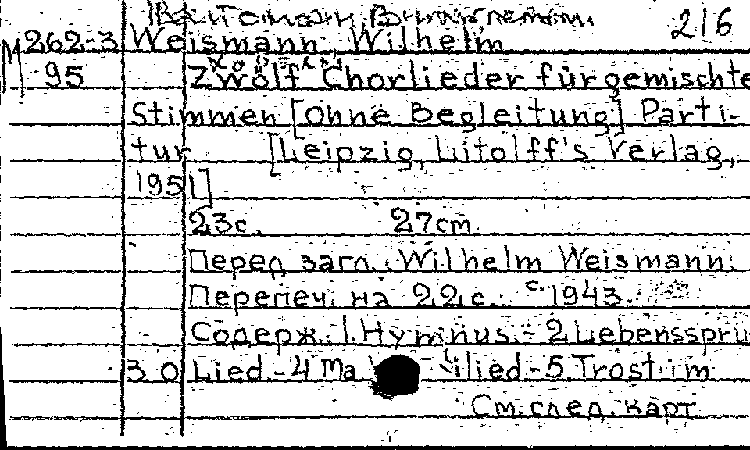 Вайсман, Вильгельм. 216
М262-3 Weismann, Wilhelm
95 Zwölf Chorlieder für gemischte
Stimmen [Ohne Begleitung] Parti-
tur [Leipzig, Litolff's Verlag,
1951]
23с. 27cm.
Перед загл.: Wilhelm Weismann.
Перепеч. на 22с. с. 1943.
Содерж.: 1. Hymnus. - 2. Lebensspru
30 Lied. - 4 Ma lied. - 5. Trost im
См. след. карт.